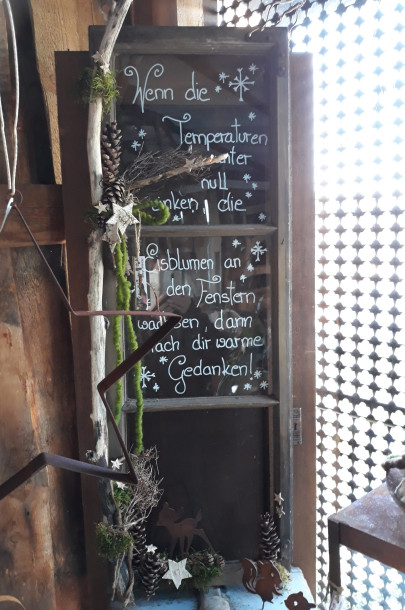 Wenn die
Temperaturen
unter
null
sinken, die
Eisblumen an
den Fenstern
wachsen, dann
mach dir warme
Gedanken!